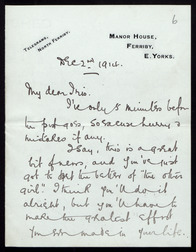 6
MANOR HOUSE,
FERRIBY,
E. YORKS.
TELEGRAMS,
NORTH FERRIBY.
Dec 2nd 1914.
My dear Iris.
I've only 5 minutes before
the post goes, so excuse hurry &
mistakes if any.
I say, this is a great
bit of news, and you've just
got to the better of the other
girl. I think you'll do it
alright, but you'll have to
make the greatest effort
You ever made in your life.